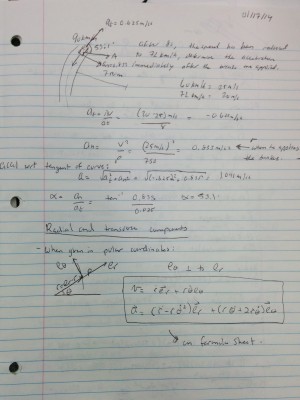 01/17/14
a_t = 0.625 m/s
90 km/h
53.1°
After 8s, the speed has been reduced
A
to 72 km/h, determine the acceleration
immediately after the brakes are applied.
90 km/h = 25 m/s
72 km/h = 20 m/s
a_t = Δv/Δt = (20-25)m/s / 8 = -0.625 m/s
a_n = v²/ρ = (25m/s)²/750 = 0.833 m/s² ← when he applies
the brakes.
wrt tangent of curve:
α = a_n/a_t = tan⁻¹ 0.833/0.625 α = 53.1°
Radial and transverse components
- When given in polar coordinates:
eθ er
eθ ⊥ to er
θ
v = ṙer + rθ̇eθ
a = (r̈ - rθ̇²)er + (rθ̈ + 2ṙθ̇)eθ
on formula sheet.